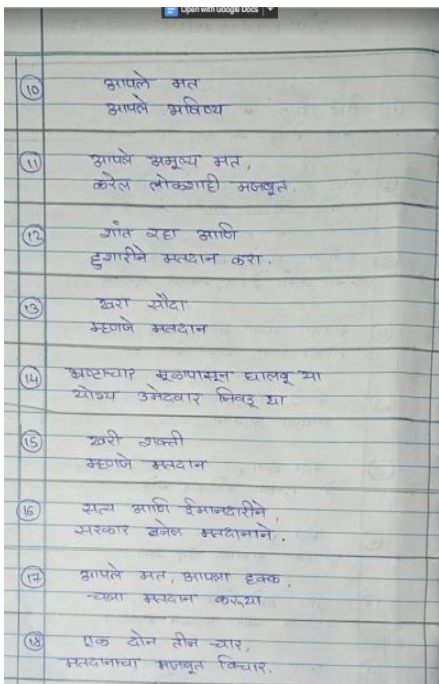 Open with Google Docs
10 आपले मत
आपले भविष्य
11 आपले अमूल्य मत,
करेल लोकशाही मजबूत.
12 शांत रहा आणि
हुशारीने मतदान करा.
13 खरा सौदा
म्हणजे मतदान
14 भ्रष्टाचार मूळापासून घालवू या
योग्य उमेदवार निवडू या
15 खरी शक्ती
म्हणजे मतदान
16 सत्य आणि ईमानदारीने,
सरकार बनेल मतदानाने.
17 आपले मत, आपला हक्क,
चला मतदान करूया
18 एक दोन तीन चार,
मतदानाचा मजबूत विचार.